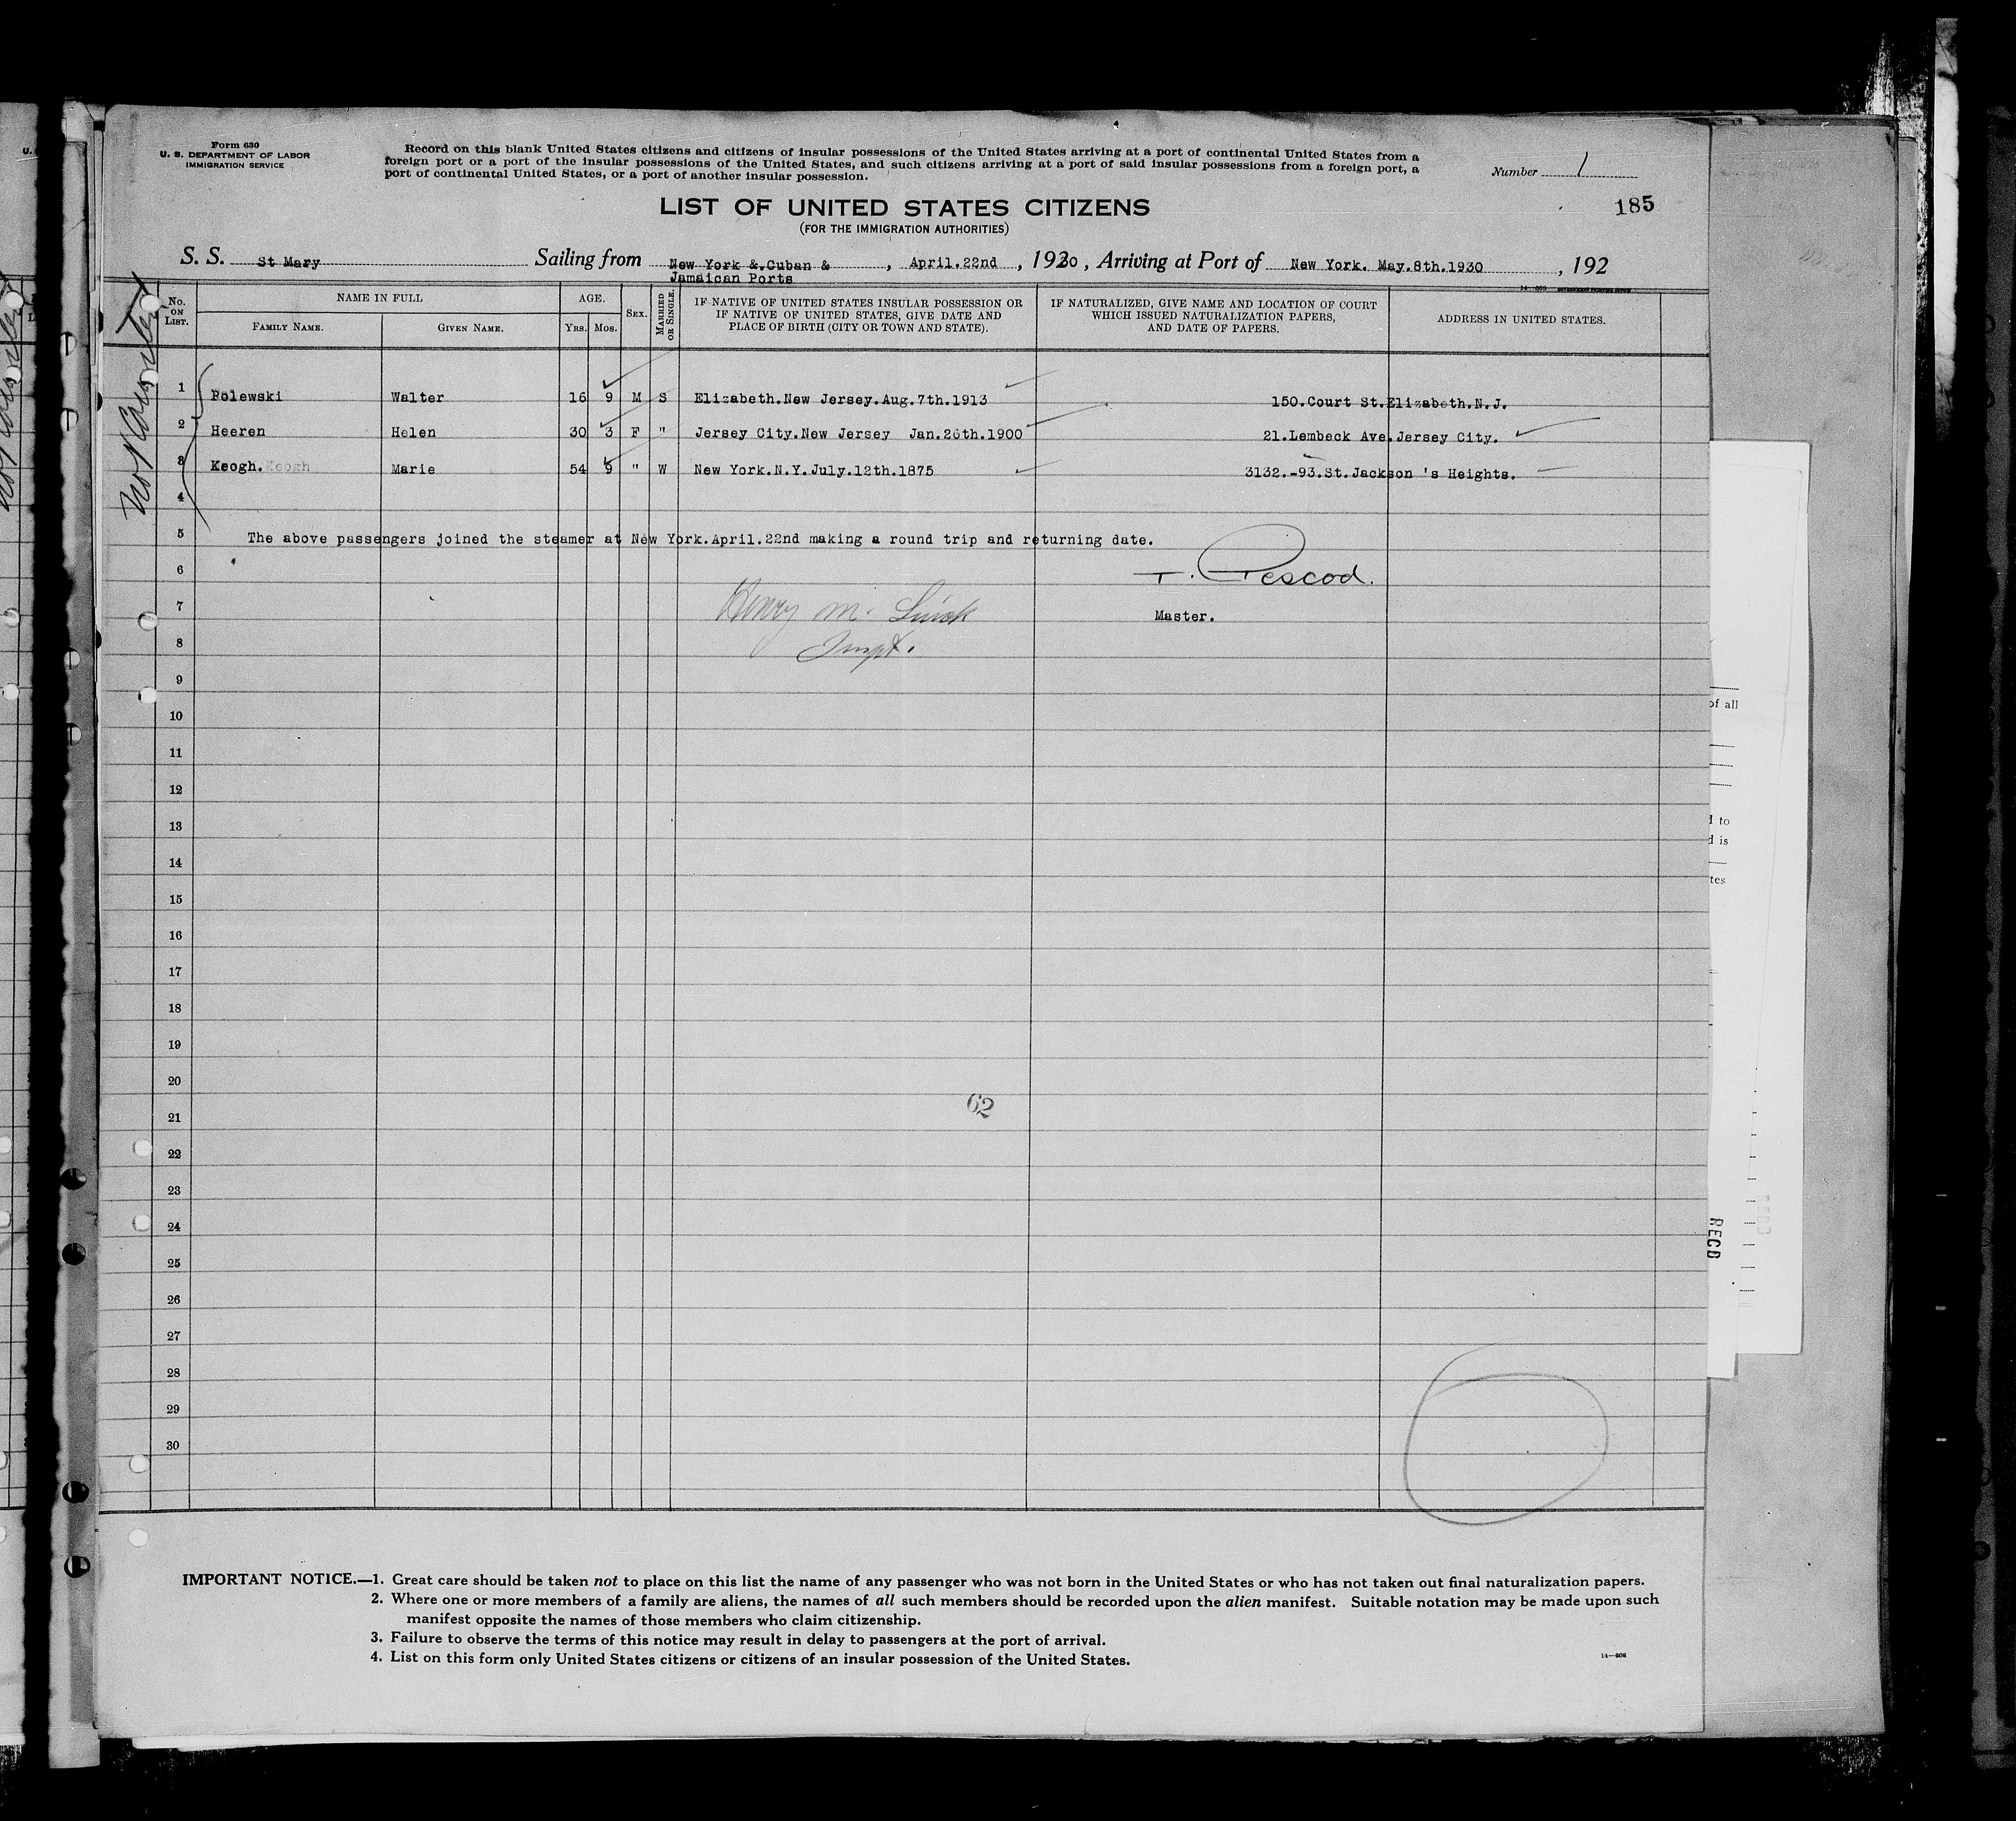 Form 630
U. S. DEPARTMENT OF LABOR
IMMIGRATION SERVICE
Record on this blank United States citizens and citizens of insular possessions of the United States arriving at a port of continental United States from a
foreign port or a port of the insular possessions of the United States, and such citizens arriving at a port of said insular possessions from a foreign port, a
port of continental United States, or a port of another insular possession.
Number 1
185
LIST OF UNITED STATES CITIZENS
(FOR THE IMMIGRATION AUTHORITIES)
S. S. St Mary Sailing from New York & Cuban & Jamaican Ports, April.22nd, 1930, Arriving at Port of New York. May.8th.1930, 192
No. ON LIST. NAME IN FULL AGE. SEX. MARRIED OR SINGLE. IF NATIVE OF UNITED STATES INSULAR POSSESSION OR IF NATIVE OF UNITED STATES, GIVE DATE AND PLACE OF BIRTH (CITY OR TOWN AND STATE). IF NATURALIZED, GIVE NAME AND LOCATION OF COURT WHICH ISSUED NATURALIZATION PAPERS, AND DATE OF PAPERS. ADDRESS IN UNITED STATES.
FAMILY NAME. GIVEN NAME. YRS. MOS.
Not Counted
1 Polewski Walter 16 9 M S Elizabeth.New Jersey.Aug.7th.1913 150.Court St.Elizabeth.N.J.
2 Heeren Helen 30 3 F " Jersey City.New Jersey Jan.26th.1900 21.Lembeck Ave.Jersey City.
3 Keogh. Keogh Marie 54 9 " W New York.N.Y.July.12th.1875 3132.-93.St.Jackson 's Heights.
4
5 The above passengers joined the steamer at New York.April.22nd making a round trip and returning date.
6 T. Pescod.
7 Henry M. Master.
8 Inspt.
9
10
11
12
13
14
15
16
17
18
19
20
62
21
22
23
24
25
26
27
28
29
30
IMPORTANT NOTICE.—1. Great care should be taken not to place on this list the name of any passenger who was not born in the United States or who has not taken out final naturalization papers.
2. Where one or more members of a family are aliens, the names of all such members should be recorded upon the alien manifest. Suitable notation may be made upon such
manifest opposite the names of those members who claim citizenship.
3. Failure to observe the terms of this notice may result in delay to passengers at the port of arrival.
4. List on this form only United States citizens or citizens of an insular possession of the United States.
of all
d to
d is
tes
RECD